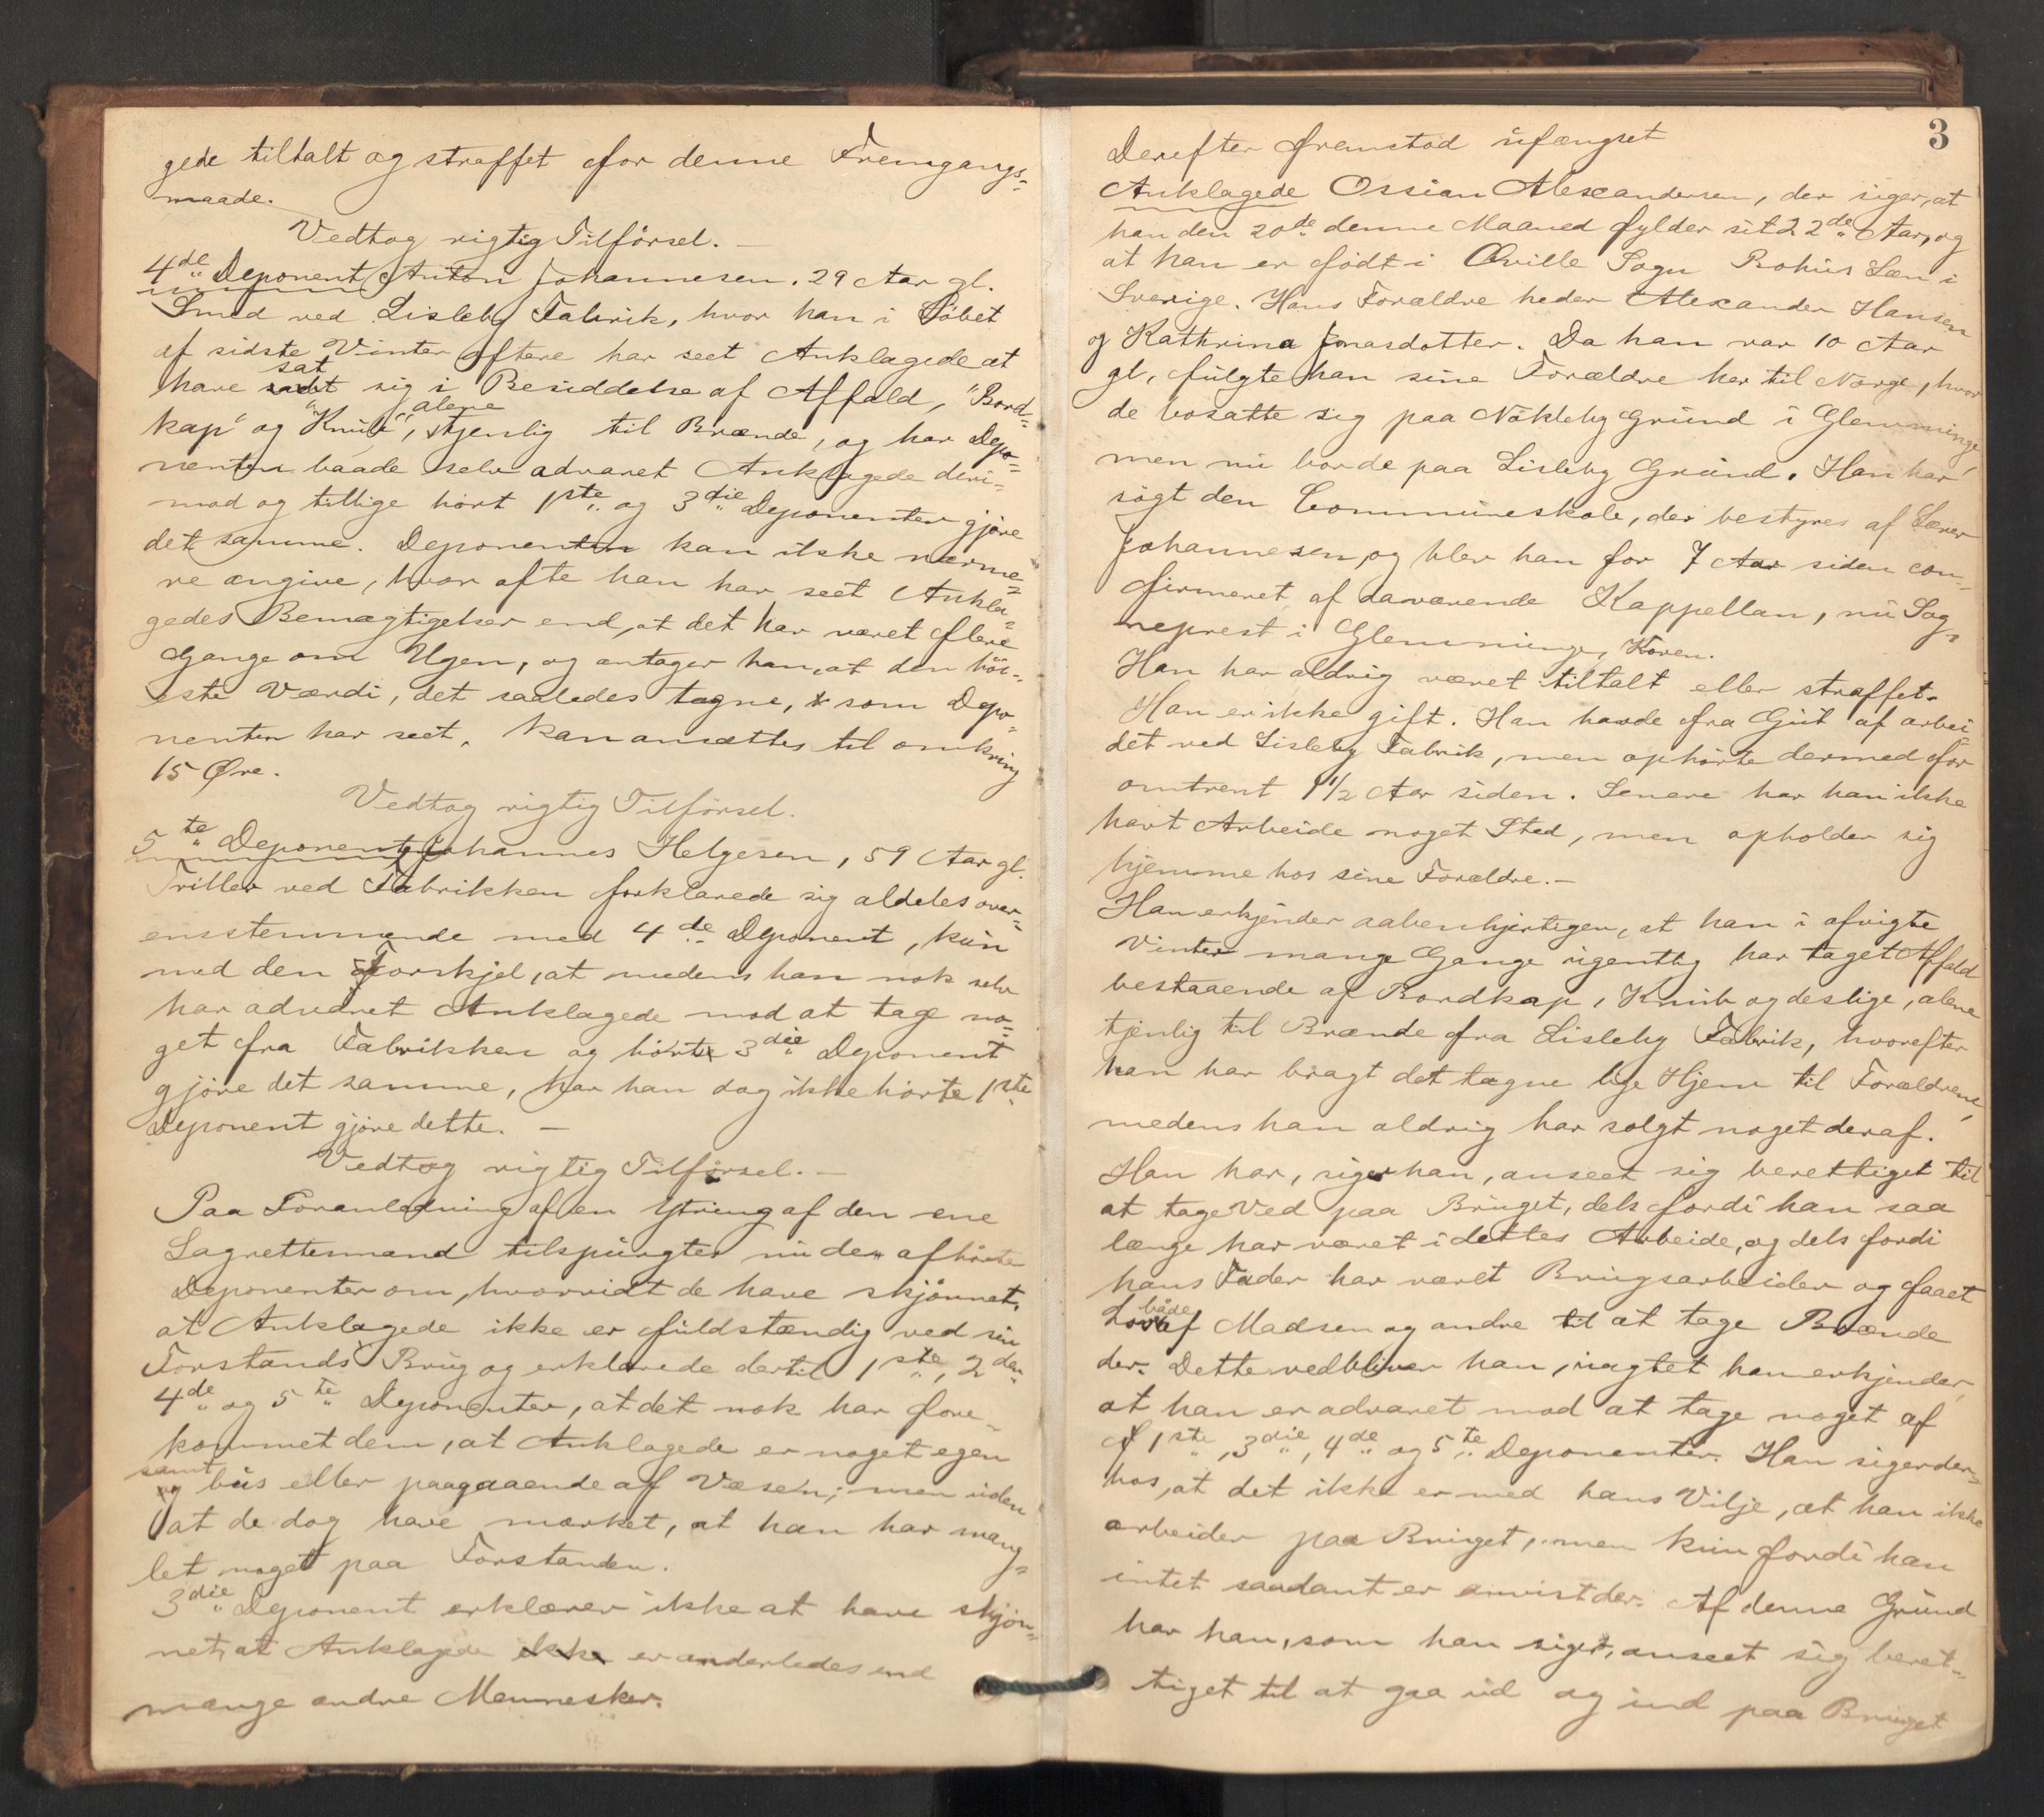 gede tiltalt og straffet for denne Fremgangs-
maade.
Vedtog rigtig Tilførsel. —
4de Deponent Anton Johannesen. 29 Aar gl.
Smed ved Lisleby Fabrik, hvor han i Løbet
af sidste Vinter oftere har seet Anklagede at
have sat sig i Besiddelse af Affald, "Bord-
kap" og "Knub", alene tjenlig til Brænde, og har Depo-
nenten baade selv advaret Anklagede deri-
mod og tillige hørt 1ste og 3die Deponenter gjøre
det samme. Deponenten kan ikke nærme-
re angive, hvor ofte han har seet Ankla-
gedes Bemægtigelser end, at det har været flere
Gange om Ugen, og antager han, at den høi-
este Værdi, det saaledes tagne, som Depo-
nenten har seet, kan ansættes til omkring
15 Øre.
Vedtog rigtig Tilførsel.
5te Deponent Johannes Helgesen, 59 Aar gl.
Triller ved Fabrikken forklarede sig aldeles over-
ensstemmende med 4de Deponent, kun
med den Forskjel, at medens han nok selv
har advaret Anklagede mod at tage no-
get fra Fabrikken og hørte 3die Deponent
gjøre det samme, har han dog ikke hørte 1ste
Deponent gjøre dette. —
Vedtog rigtig Tilførsel. —
Paa Foranledning af en Ytring af den ene
Lagrettemand tilspurgtes nu de afhørte
Deponenter om, hvorvidt de have skjønnet,
at Anklagede ikke er fuldstændig ved sin
Forstands Brug og erklærede dertil 1ste, 2den,
4de og 5te Deponenter, at det nok har fore-
kommet dem, at Anklagede er noget egen
samt bus eller paagaaende af Væsen; men uden
at de dog have mærket, at han har mang-
let noget paa Forstanden.
3die Deponent erklærer ikke at have skjøn-
net, at Anklagede ikke er anderledes end
mange andre Mennesker.
3
Derefter fremstod ufængset
Anklagede Ossian Alexandersen, der siger, at
han den 20de denne Maaned fylder sit 22de Aar, og
at han er født i Qville Sogn Bohus Læn i
Sverige. Hans Forældre heder Alexander Hansen
og Kathrina Jonasdotter. Da han var 10 Aar
gl, fulgte han sine Forældre her til Norge, hvor
de bosatte sig paa Nökleby Grund i Glemminge,
men nu bor de paa Lisleby Grund. Han har
søgt den Communeskole, der bestyres af Lærer
Johannesen, og blev han for 7 Aar siden con-
firmeret af daværende Kappellan, nu Sog-
neprest i Glemminge, Koren.
Han har aldrig været tiltalt eller straffet.
Han er ikke gift. Han havde fra Gut af arbei-
det ved Lisleby Fabrik, men ophørte dermed for
omtrent 1 1/2 Aar siden. Senere har han ikke
havt Arbeide noget Sted, men opholder sig
hjemme hos sine Forældre. —
Han erkjender aabenhjertigen, at han i afvigte
Vinter mange Gange egentlig har taget Affald
bestaaende af Bordkap, Knub og deslige, alene
tjenlig til Brænde fra Lisleby Fabrik, hvorefter
han har bragt det tagne lige Hjem til Forældrene,
medens han aldrig har solgt noget deraf.
Han har, siger han, anseet sig berettiget til
at tage Ved paa Bruget, dels fordi han saa
længe har været i dettes Arbeide, og dels fordi
hans Fader har været Brugsarbeider og faaet
Lov både af Madsen og andre til at tage Brænde
der. Dette vedbliver han, uagtet han erkjender,
at han er advaret mod at tage noget af
af 1ste, 3die, 4de og 5te Deponenter. Han siger der-
hos, at det ikke er med hans Vilje, at han ikke
arbeider paa Bruget, men kun fordi han
intet saadant er anvist der. Af denne Grund
har han, som han siger, anseet sig beret-
tiget til at gaa ud og ind paa Bruget